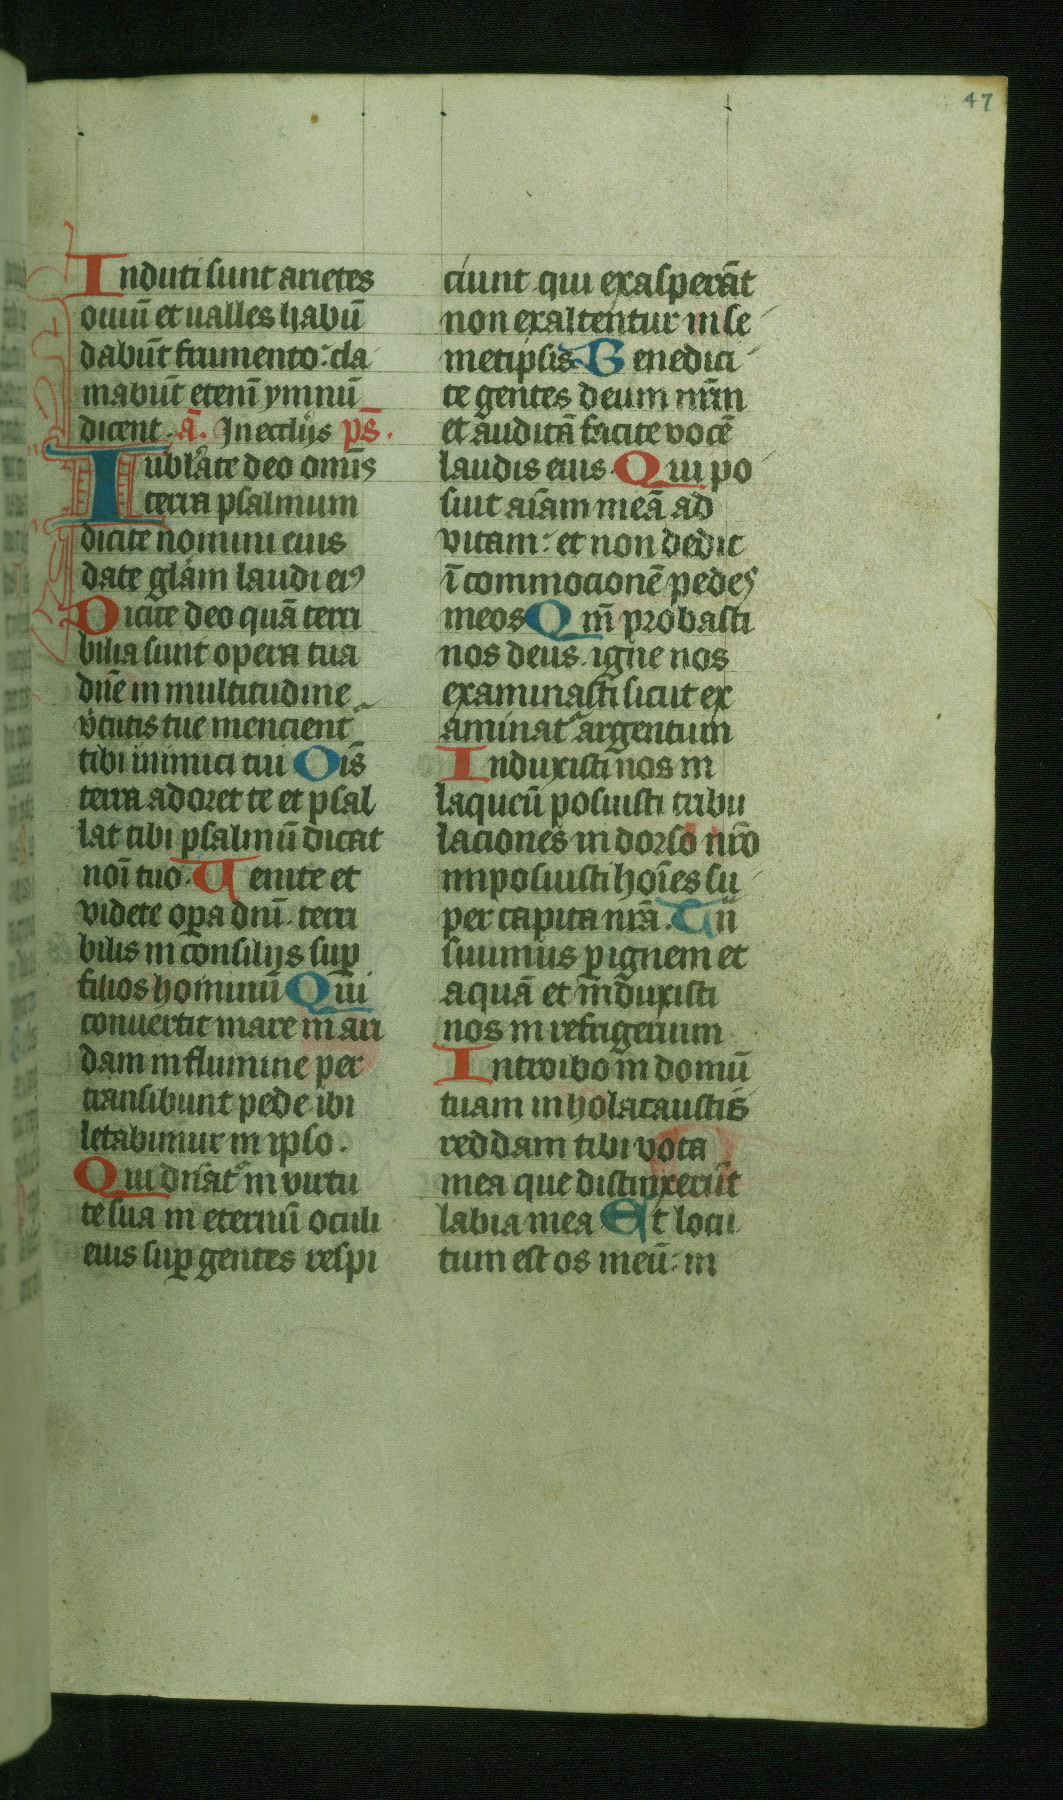 47
Induti sunt arietes
ouiū et ualles habū
dabūt frumento: cla
mabūt etenī ymnū
dicent. ā. In ecclijs ps̄.
Iublate deo omīs
terra psalmum
dicite nomini eius
date glām laudi eiꝰ
Dicite deo quā terri
bilia sunt opera tua
dn̄e in multitudine
v̄tutis tue mencient᷑
tibi inimici tui Oīs
terra adoret te et psal
lat tibi psalmū dicat
noī tuo. Uenite et
videte oꝑa dn̄i. terri
bilis in consilijs suꝑ
filios hominū Qui
conuertit mare in ari
dam in flumine per
transibunt pede ibi
letabimur in ipso.
Qui dn̄at᷑ in virtu
te sua in eternū oculi
eius suꝑ gentes respi
ciunt qui exasperāt
non exaltentur in se
metipsis. Benedici
te gentes deum nr̄m
et auditā facite vocē
laudis eius. Qui po
suit aīam meā ad
vitam: et non dedit
ī commocionē pedes
meos Qm̄ probasti
nos deus. igne nos
examinasti sicut ex
aminat᷑ argentum
Induxisti nos in
laqueū posuisti tribu
laciones in dorso nr̄o
imposuisti hoīes su
per capita nr̄a. Tn̄
siuimus ꝑ ignem et
aquā et īduxisti
nos in refrigerium
Introibo in domū
tuam in holacaustis
reddam tibi vota
mea que distinxerūt
labia mea Et locu
tum est os meū: in